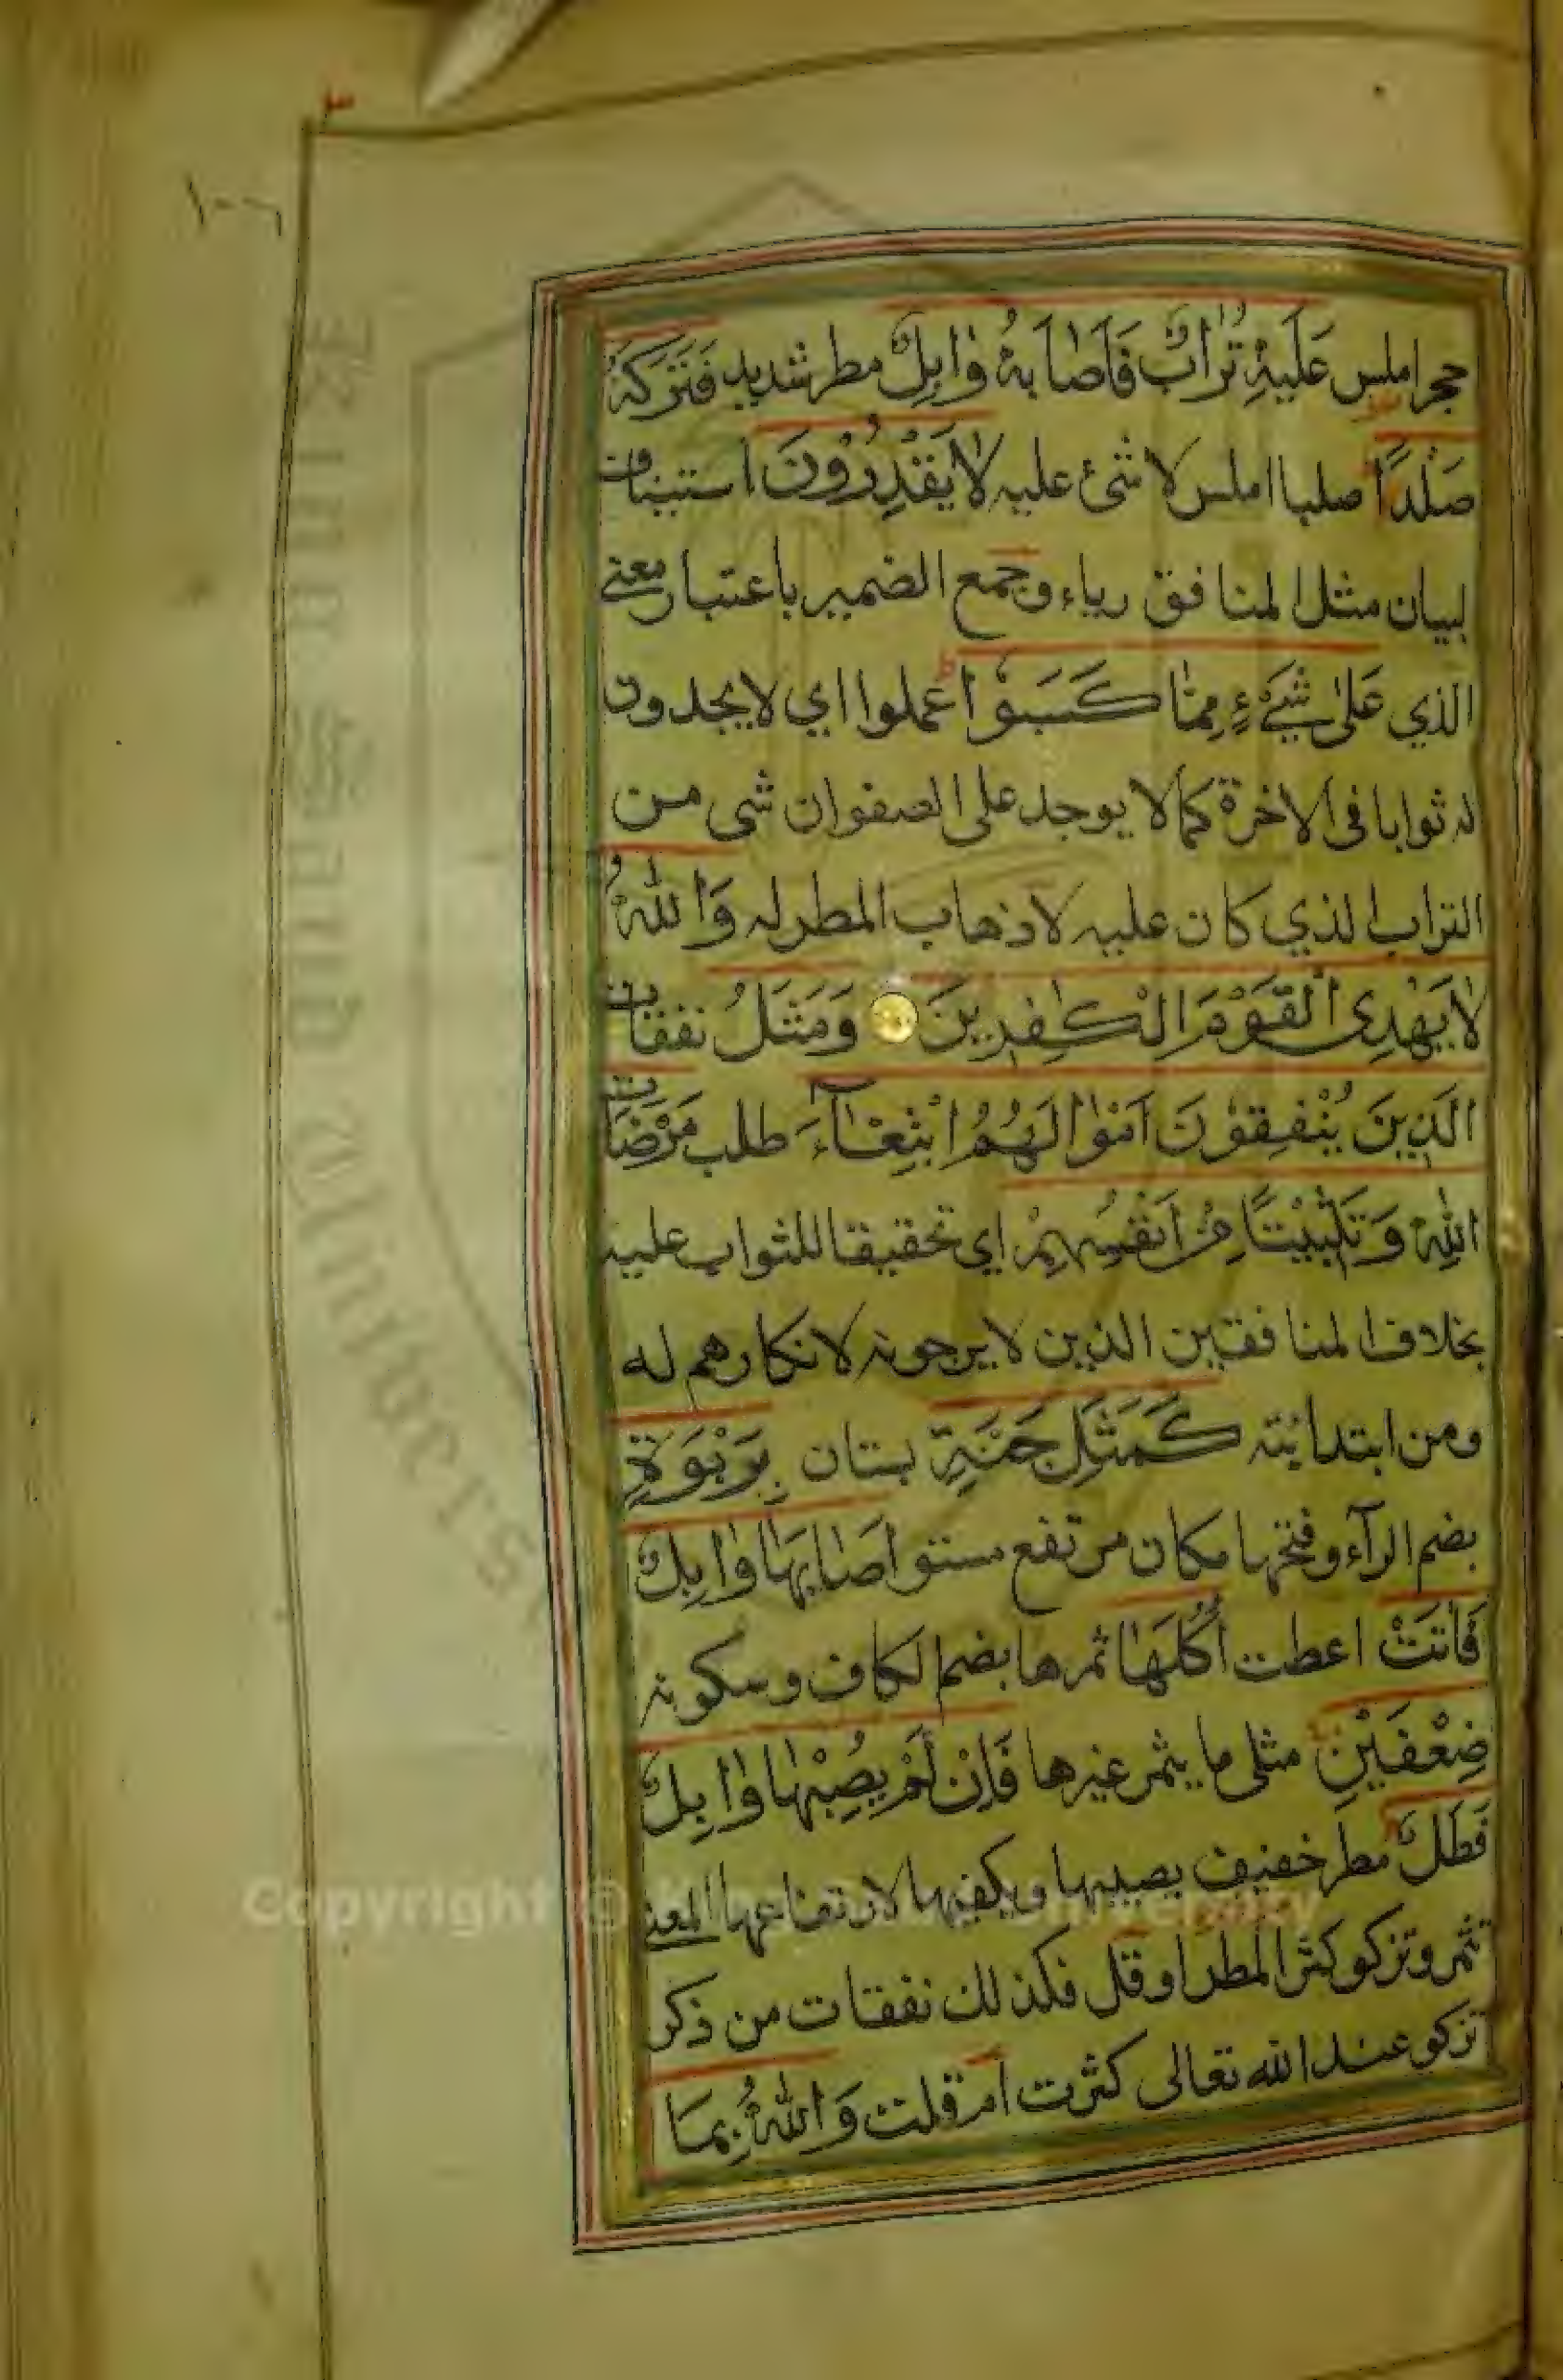 ١٠٠٦
حجر املس عَلَيْهِ تُرَابٌ فَاَصَابَهُ وَابِلٌ مطر شديد فَتَرَكَهُ
صَلْدًا صلبا املس لا شئ عليه لَا يَقْدِرُوْنَ استيناف
لبيان مثل المنافق رياء وجمع الضمير باعتبار معنى
الذي عَلٰى شَيْءٍ مِمَّا كَسَبُوْا عملوا اي لا يجدون
له ثوابا فى الاخرة كما لا يوجد على الصفوان شى من
التراب الذي كان عليه لاذهاب المطر له وَاللّٰهُ
لَا يَهْدِى الْقَوْمَ الْكٰفِرِيْنَ وَمَثَلُ نفقات
الَّذِيْنَ يُنْفِقُوْنَ اَمْوٰالَهُمُ ابْتِغَآءَ طلب مَرْضَاتِ
اللّٰهِ وَتَثْبِيْتًا مِنْ اَنْفُسِهِمْ اي تحقيقا للثواب عليه
بخلاف المنافقين الذين لا يرجونه لانكارهم له
ومن ابتدائية كَمَثَلِ جَنَّةٍ بستان بِرَبْوَةٍ
بضم الرآء وفتحها مكان مرتفع مستو اَصَابَهَا وَابِلٌ
فَاٰتَتْ اعطت اُكُلَهَا ثمرها بضم الكاف وسكونه
ضِعْفَيْنِ مثلى ما يثمر غيرها فَاِنْ لَمْ يُصِبْهَا وَابِلٌ
فَطَلٌّ مطر خفيف يصيبها ويكفيها لارتفاعها المعنى
تثمر وتزكو كثر المطر او قل فكذلك نفقات من ذكر
تزكو عند الله تعالى كثرت ام قلت وَاللّٰهُ بِمَا
Copyright © King Saud University
King Saud University